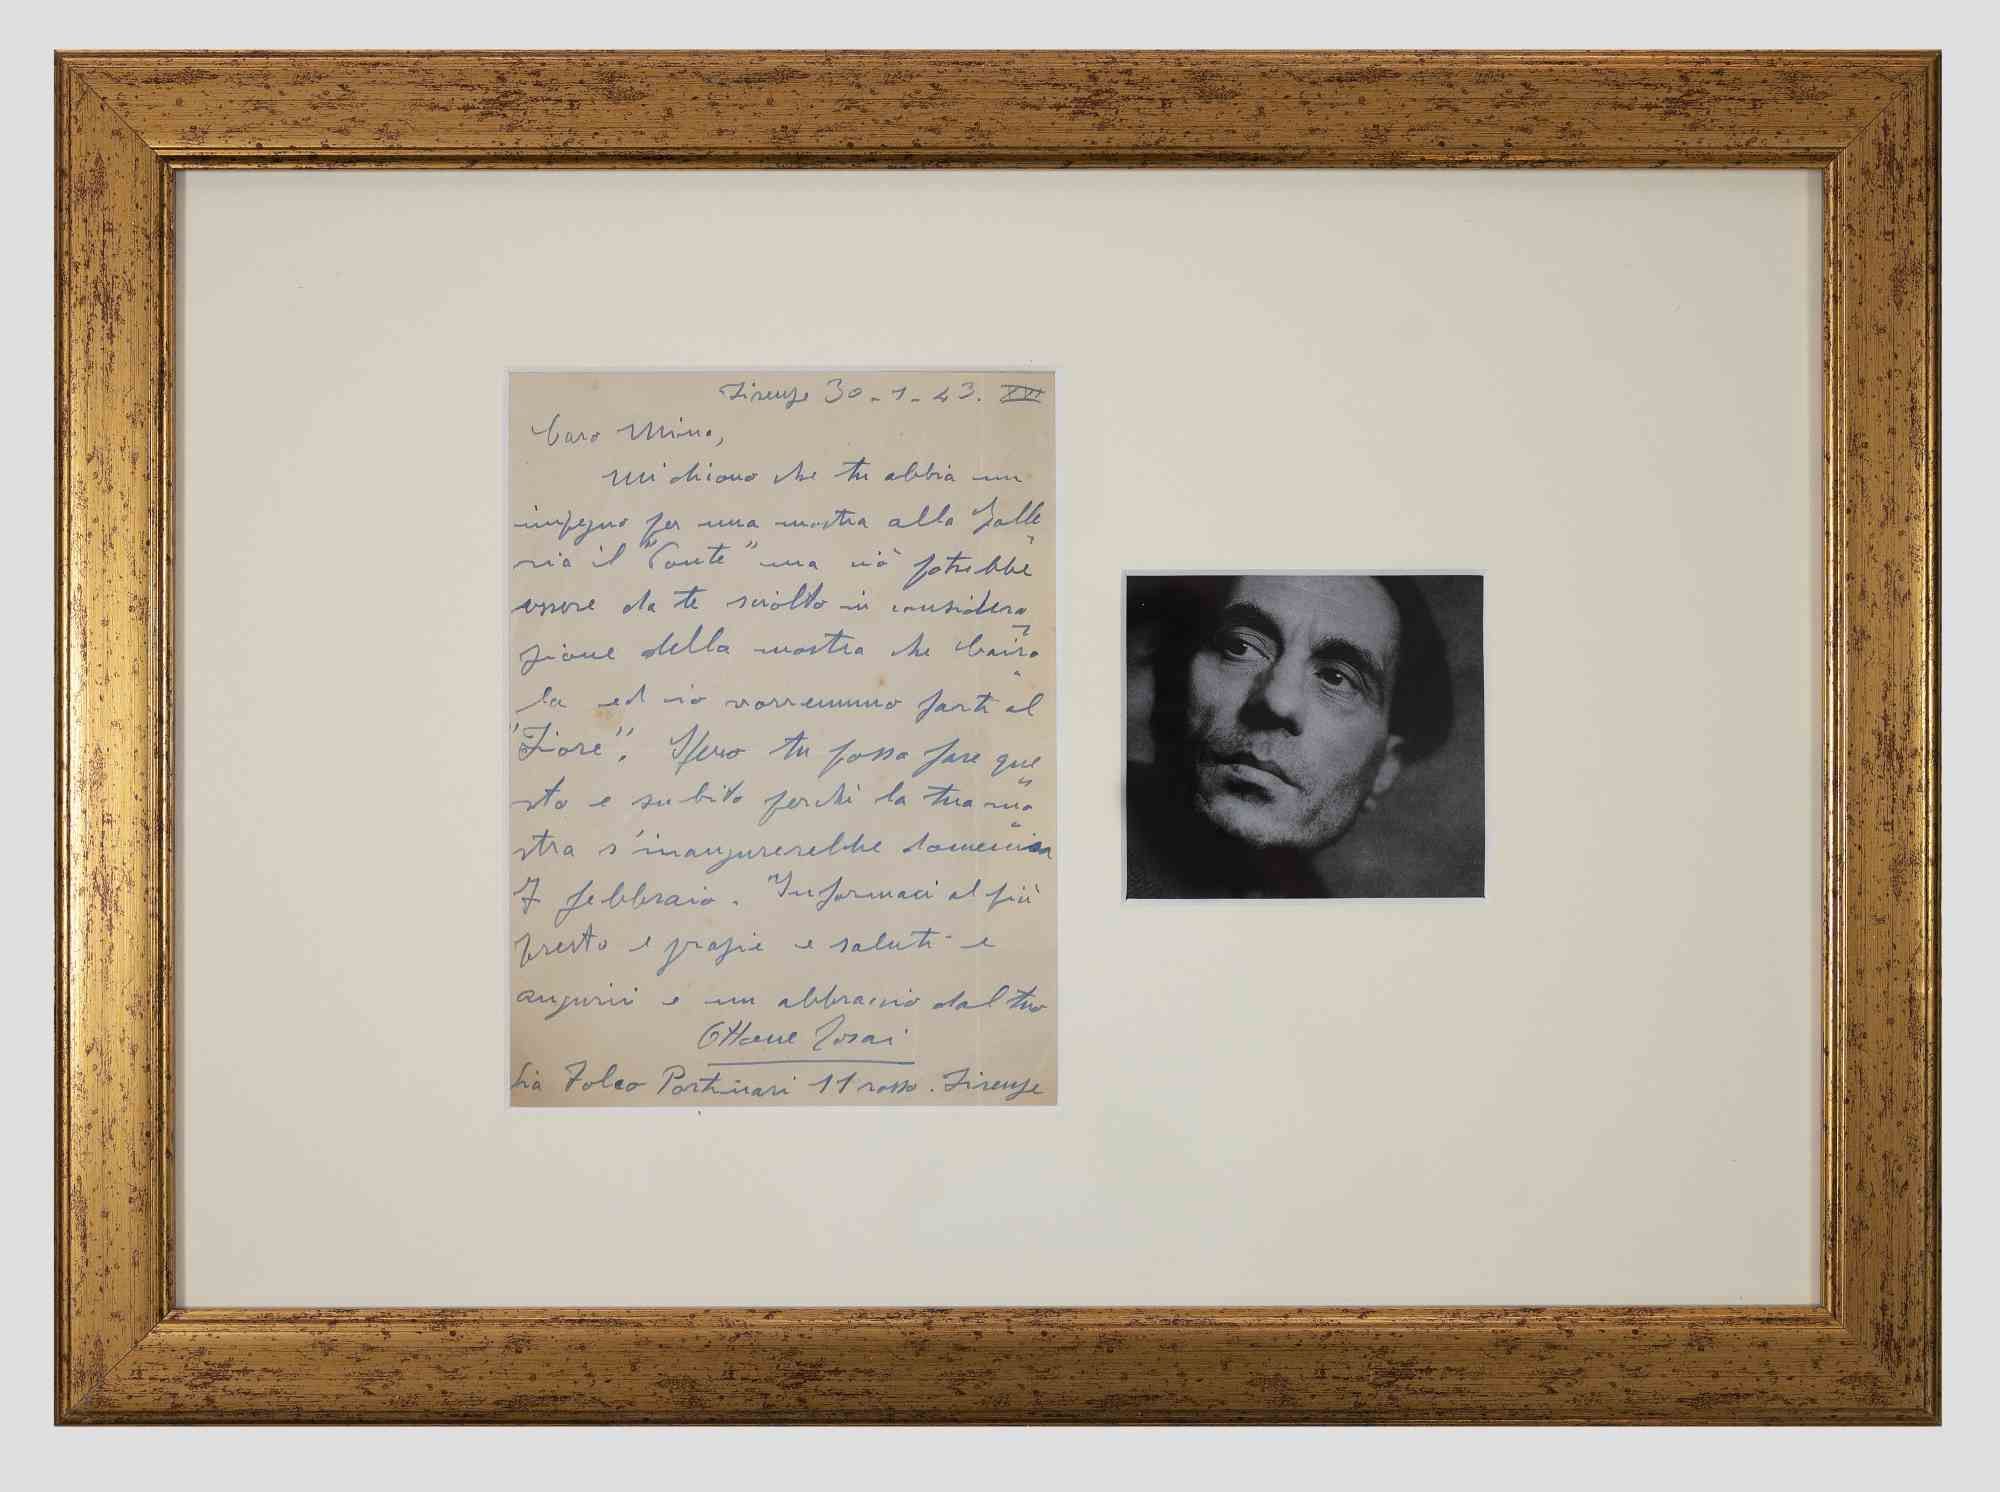 Firenze 30-1-43. XXI
Caro Mino,
Mi dicono che tu abbia un
impegno per una mostra alla Galle
ria il "Ponte" ma ciò potrebbe
essere da te sciolto in considera
zione della mostra che Cairo
la ed io vorremmo farti al
"Fiore". Spero tu possa fare que
sto e subito perchè la tua mo
stra s'inaugurerebbe domenica
7 febbraio. Informaci al più
presto e grazie e saluti e
auguri e un abbraccio dal tuo
Ottone Rosai
Via Folco Portinari 11 rosso. Firenze